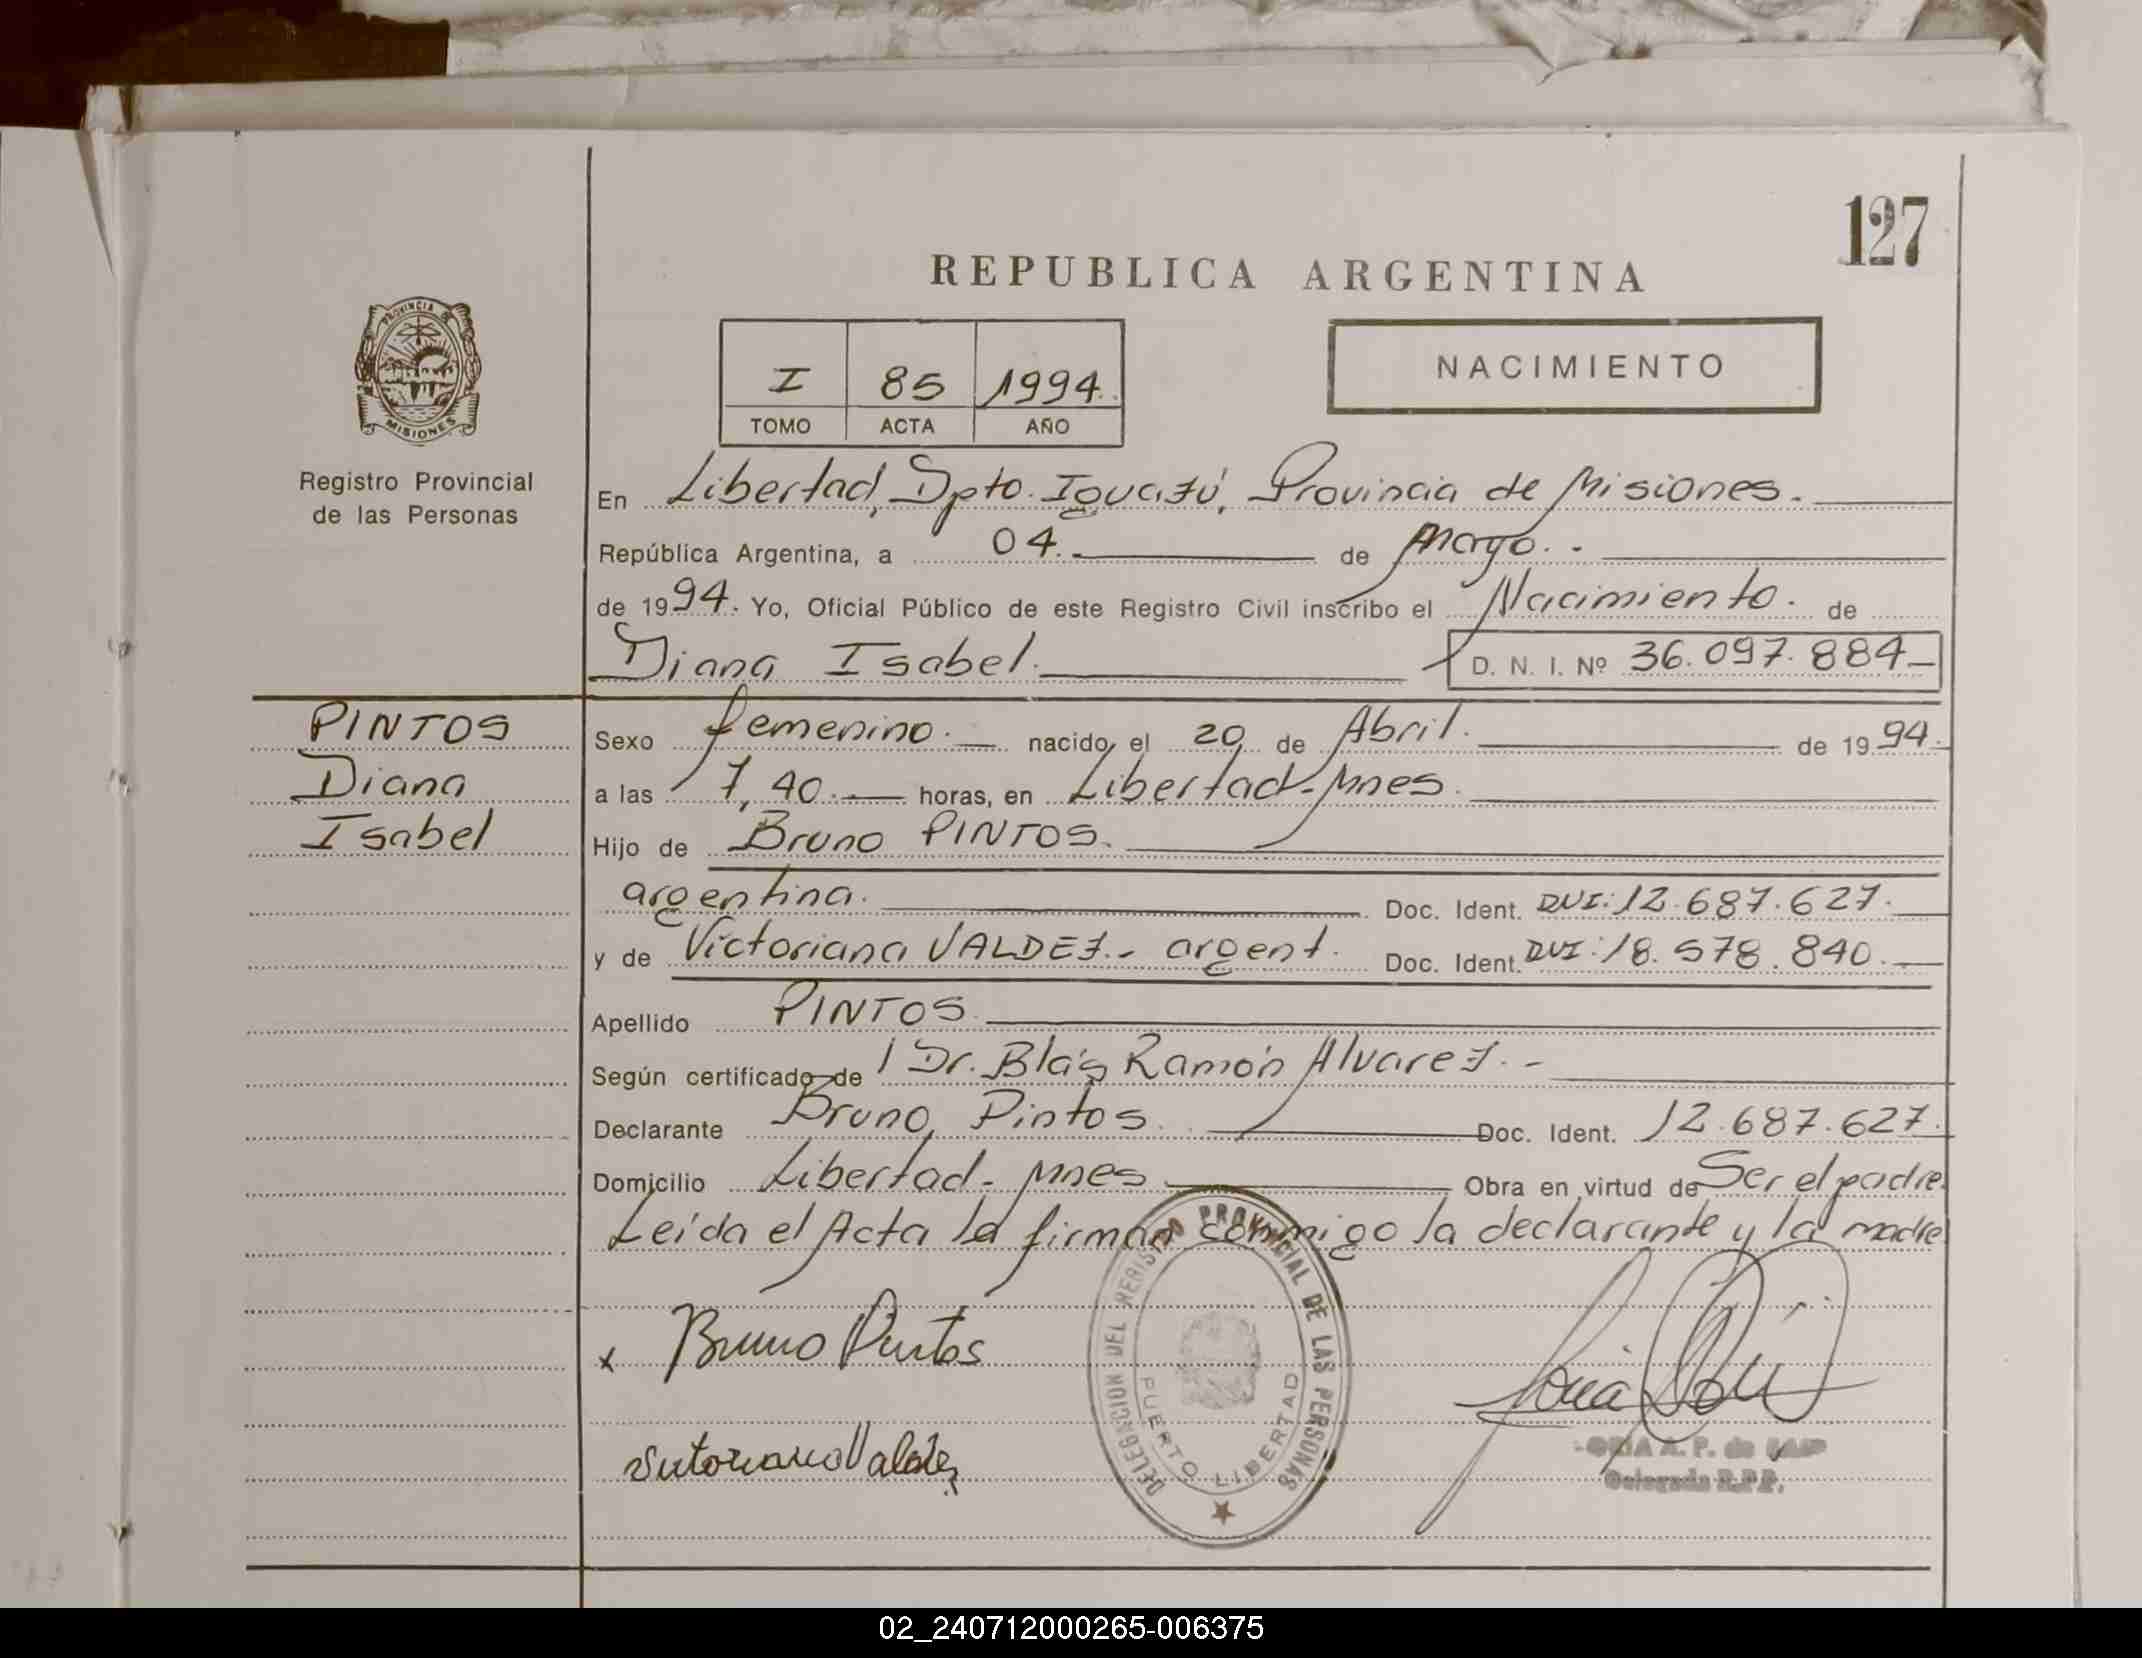 127
REPUBLICA ARGENTINA
PROVINCIA DE
MISIONES
Registro Provincial
de las Personas
I 85 1994.
TOMO ACTA AÑO
NACIMIENTO
En Libertad, Dpto. Iguazú, Provincia de Misiones.
República Argentina, a 04. de Mayo.
de 1994. Yo, Oficial Público de este Registro Civil inscribo el Nacimiento. de
Diana Isabel. D. N. I. Nº 36.097.884
PINTOS
Diana
Isabel
Sexo femenino. nacido el 20 de Abril. de 1994.
a las 7,40. horas, en Libertad-Mnes.
Hijo de Bruno PINTOS.
argentina. Doc. Ident. DNI: 12.687.627.
y de Victoriana VALDEZ.- argent. Doc. Ident. DNI: 18.578.840.
Apellido PINTOS.
Según certificado de Dr. Blás Ramón Alvarez.-
Declarante Bruno Pintos. Doc. Ident. 12.687.627.
Domicilio Libertad-Mnes Obra en virtud de Ser el padre.
Leída el Acta la firman conmigo la declarante y la madre
x Bruno Pintos
Valdez
DELEGACION DEL REGISTRO PROVINCIAL DE LAS PERSONAS
PUERTO LIBERTAD
A. P. de
Delegada R.P.P.
02_240712000265-006375